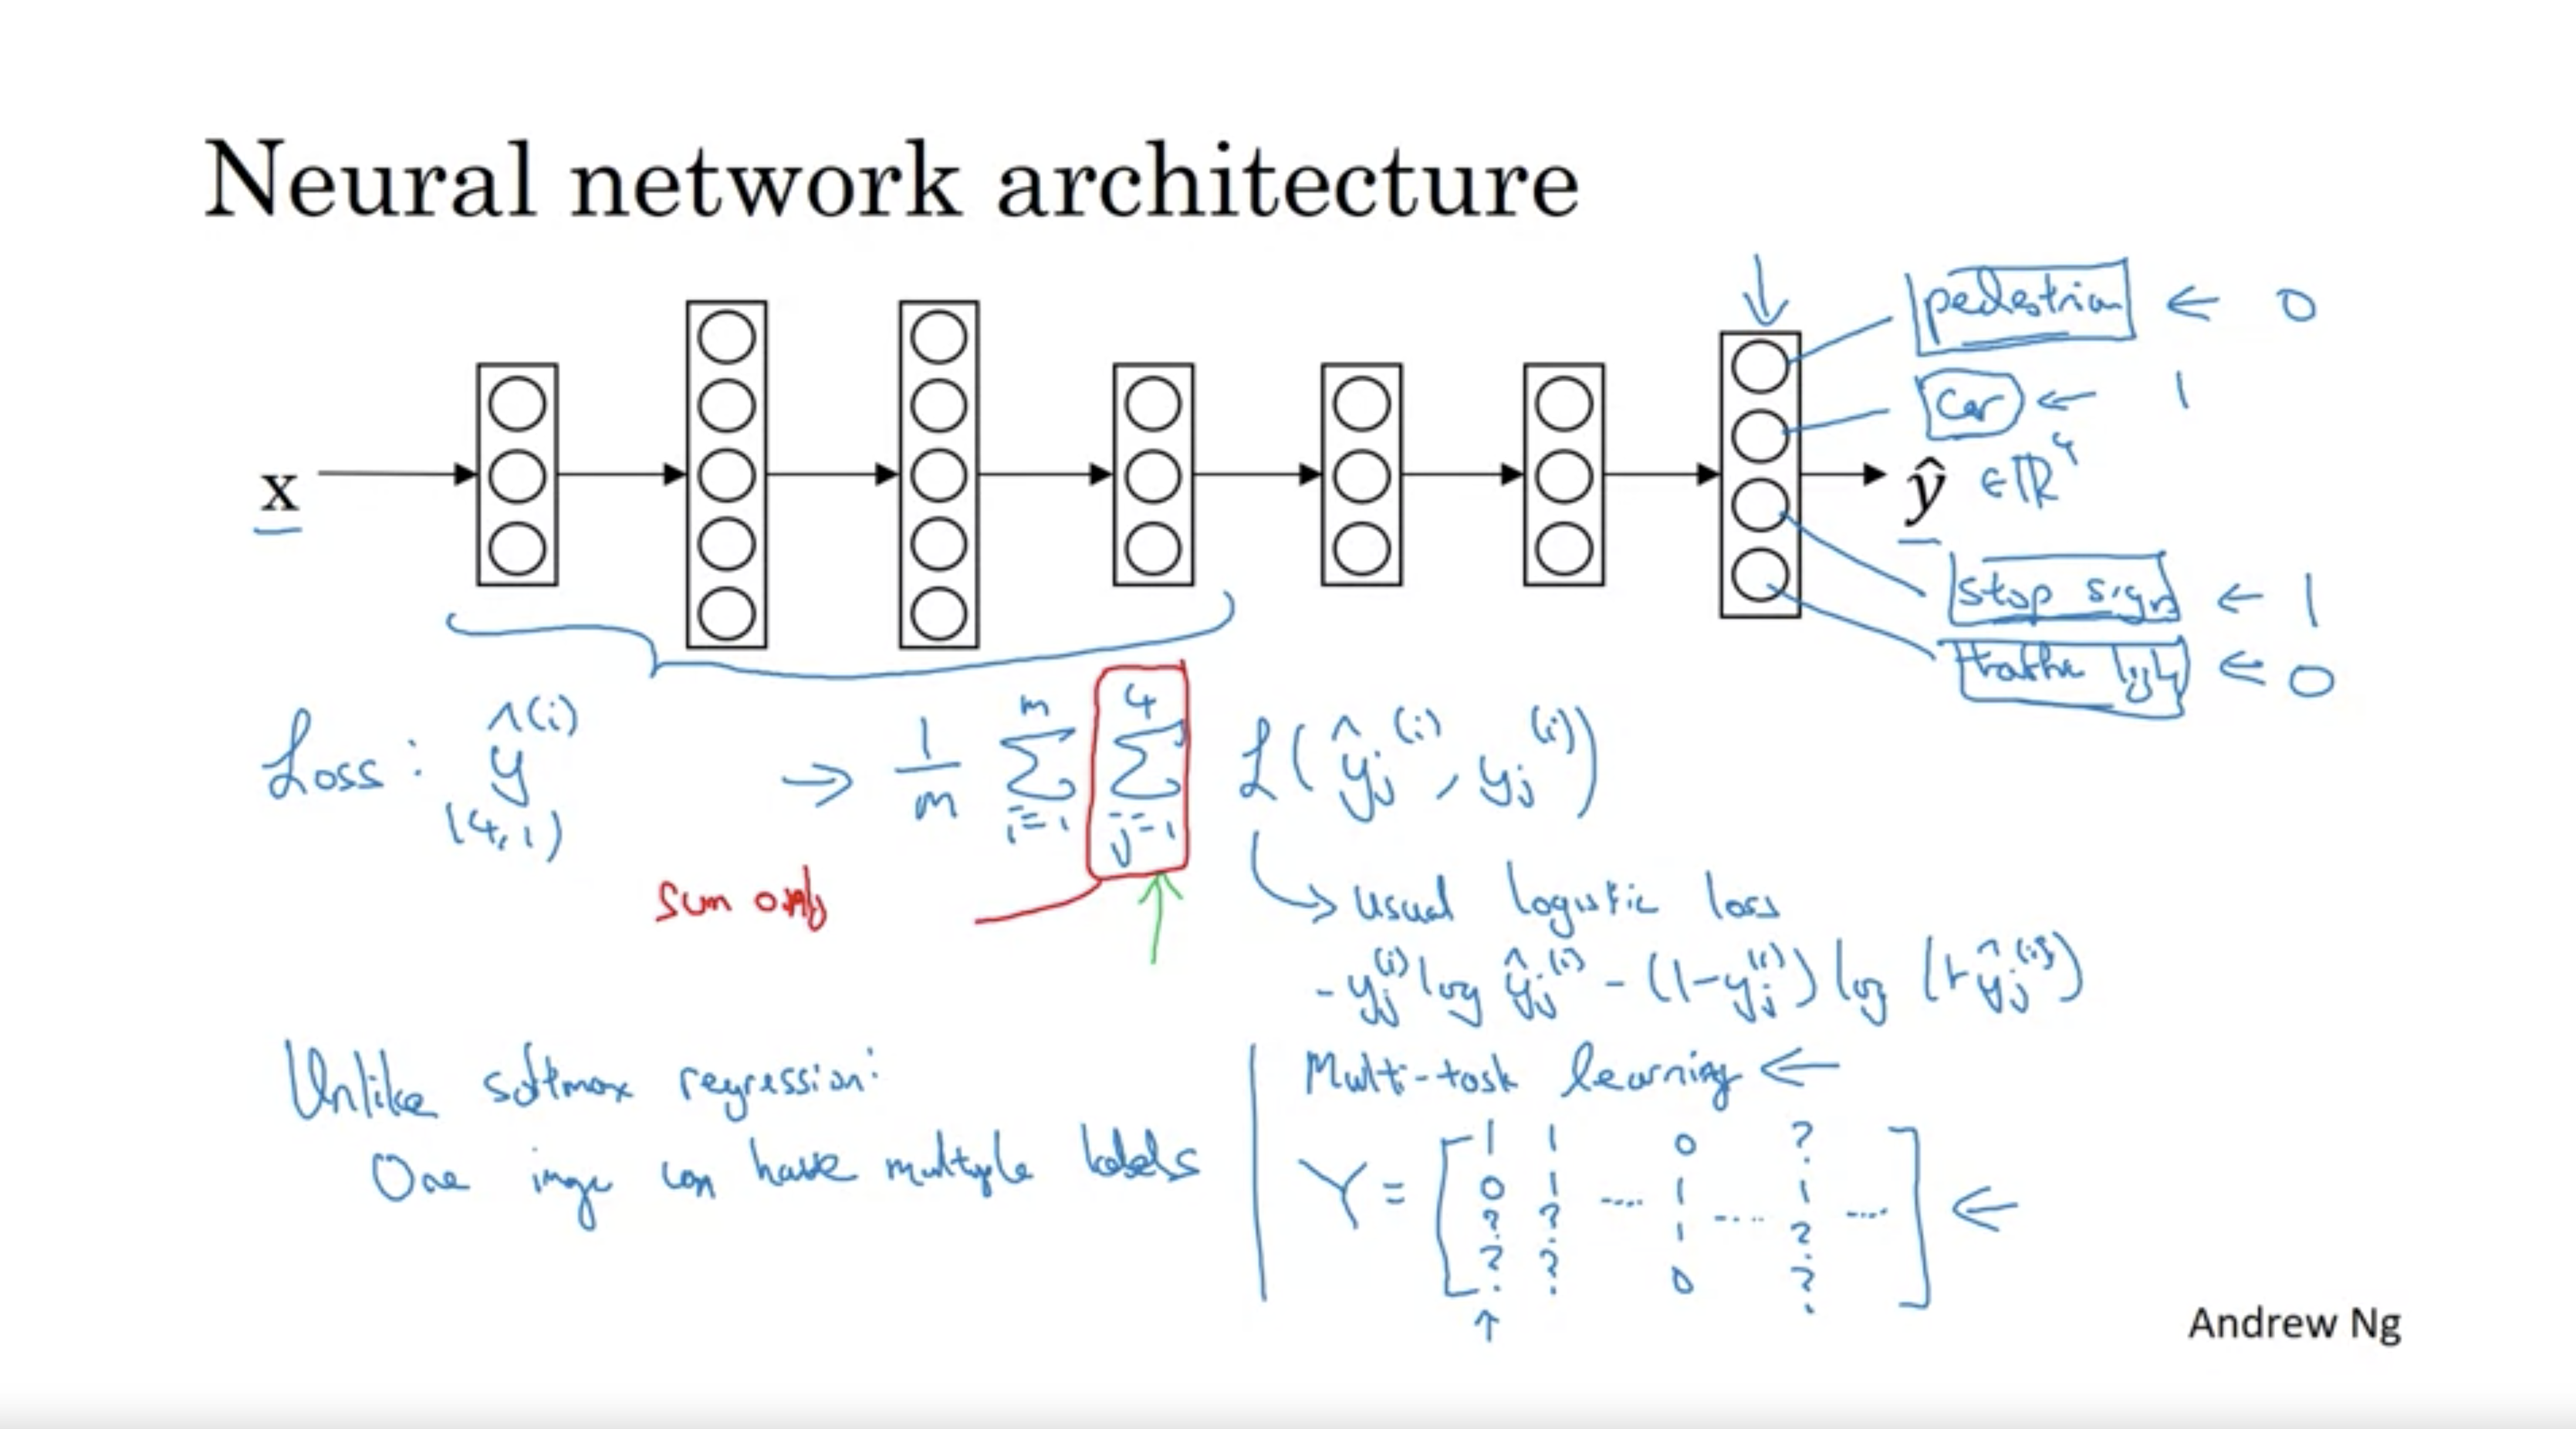 Neural network architecture
pedestrian ← 0
car ← 1
x
ŷ ∈ ℝ⁴
stop sign ← 1
traffic light ← 0
Loss: ŷ^(i) → 1/m Σ_{i=1}^{m} Σ_{j=1}^{4} ℒ(ŷ_j^(i), y_j^(i))
(4,1)
sum only
↳ usual logistic loss
- y_j^(i) log ŷ_j^(i) - (1-y_j^(i)) log (1-ŷ_j^(i))
Unlike softmax regression:
One image can have multiple labels
Multi-task learning ←
1 1 0 ?
Y = [ 0 1 .... 1 .... 1 .... ] ←
? ? 1 ?
? ? 0 ?
↑
Andrew Ng